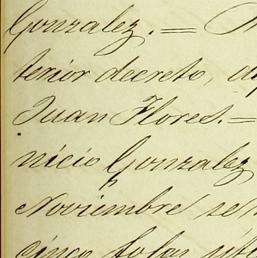 Gonzalez. =
terior decreto, d
Juan Flores. =
nicio Gonzalez
Noviembre
cinco fojas útil